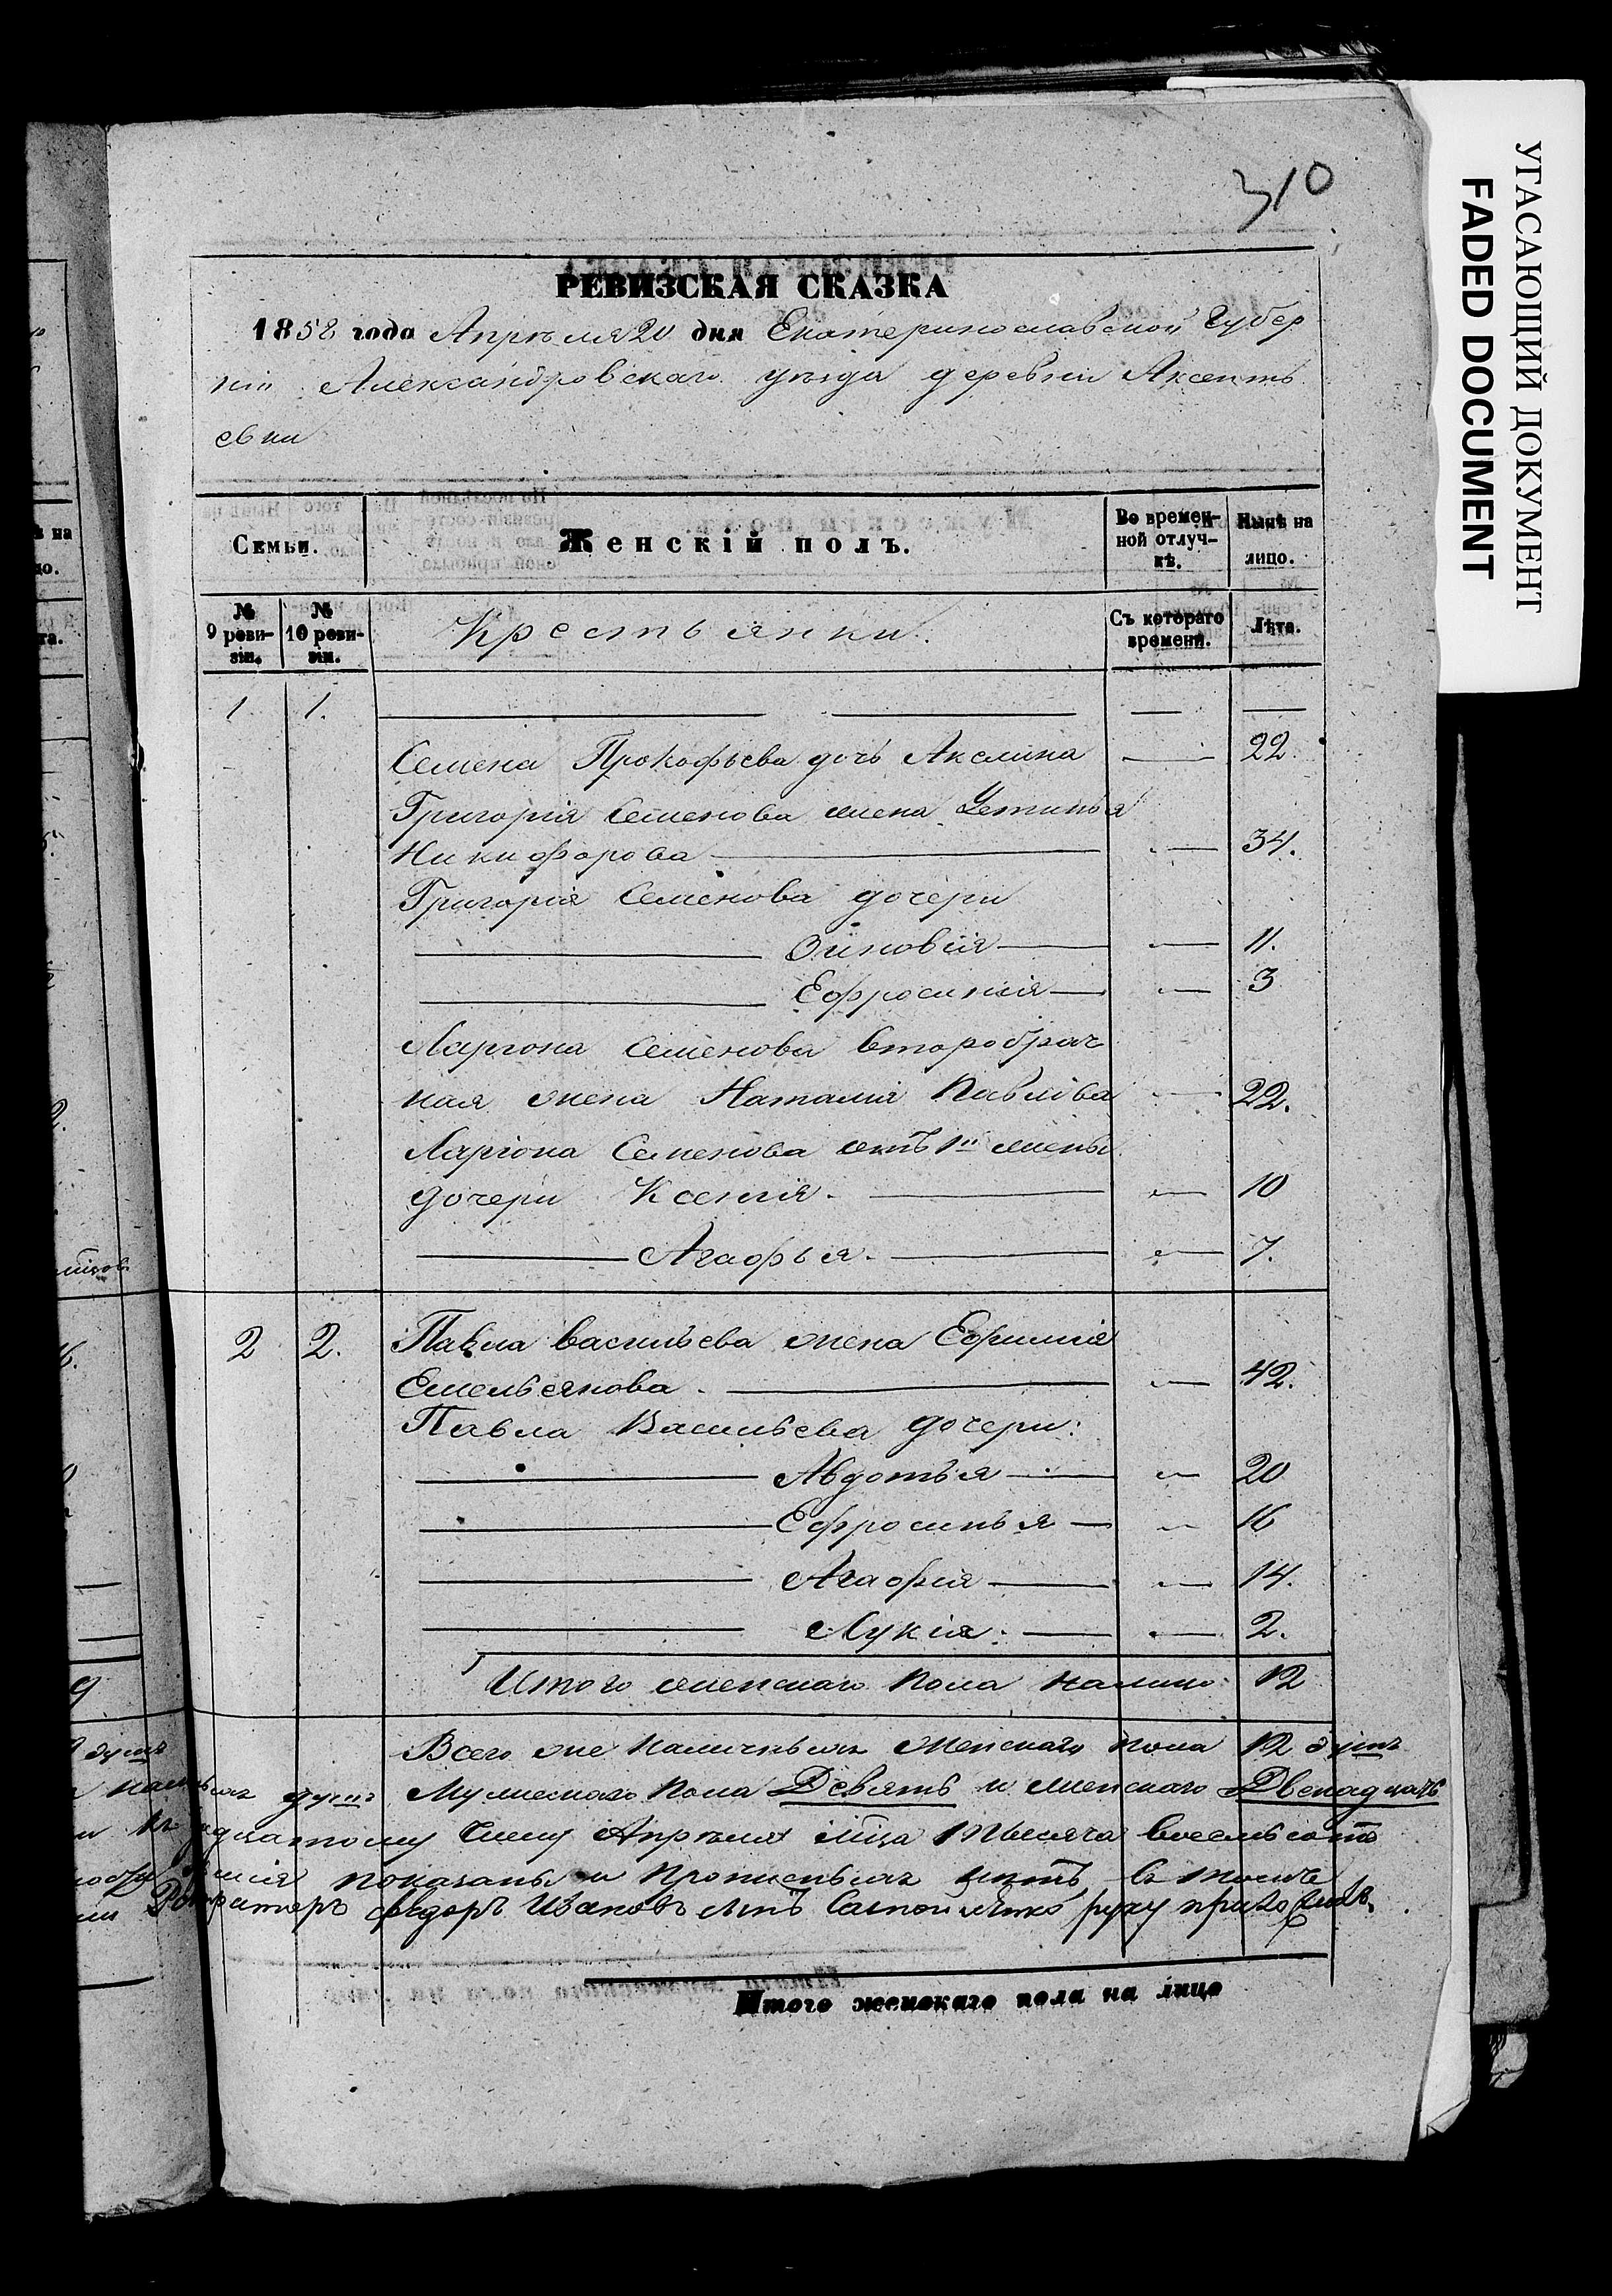 310
УГАСАЮЩИЙ ДОКУМЕНТ
FADED DOCUMENT
РЕВИЗСКАЯ СКАЗКА
1858 года Апрѣля 20 дня Екатеринославской Губер
ніи Александровскаго уѣзда деревни Аксенть
евки
Семьи.
Женскій полъ.
Во времен-
ной отлуч-
кѣ.
Нынѣ на
лицо.
№
9 реви-
зіи.
№
10 реви-
зіи.
Крестьянки.
Съ котораго
времени.
Лѣта.
1 1.
Семена Прокофьева дочь Акслина 22.
Григорія Семенова жена Устинья
Никифорова 34.
Григорія Семенова дочери
Зиновія 11.
Ефросинія 3
Ларіона Семенова второбрач
ная жена Наталія Павлова 22.
Ларіона Семенова отъ 1й жены
дочери Ксенія. 10
Агафья. 7.
2 2. Павла Васильева жена Ефимія
Емельянова. 42.
Павла Васильева дочери:
Авдотья 20
Ефросинья 16
Агафія 14.
Лукія. 2.
Итого женскаго пола налицо 12
Всего же наличныхъ женскаго пола 12 душъ
душъ Мужескаго пола Девять и женскаго Двенадцать
Апрѣля мца тысяча восемьсотъ
показаны и прописныхъ нѣтъ въ томъ
Федоръ Ивановъ сынъ руку приложилъ.
Итого женскаго пола на лицо